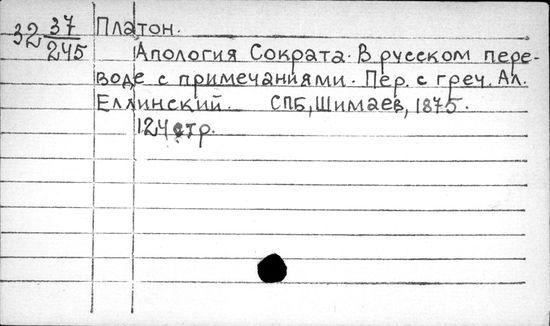 32 37/245 Платон.
Апология Сократа. В русском пере-
воде с примечаниями. Пер. с греч. Ал.
Еллинский. СПБ, Шимаев, 1875.
124 стр.